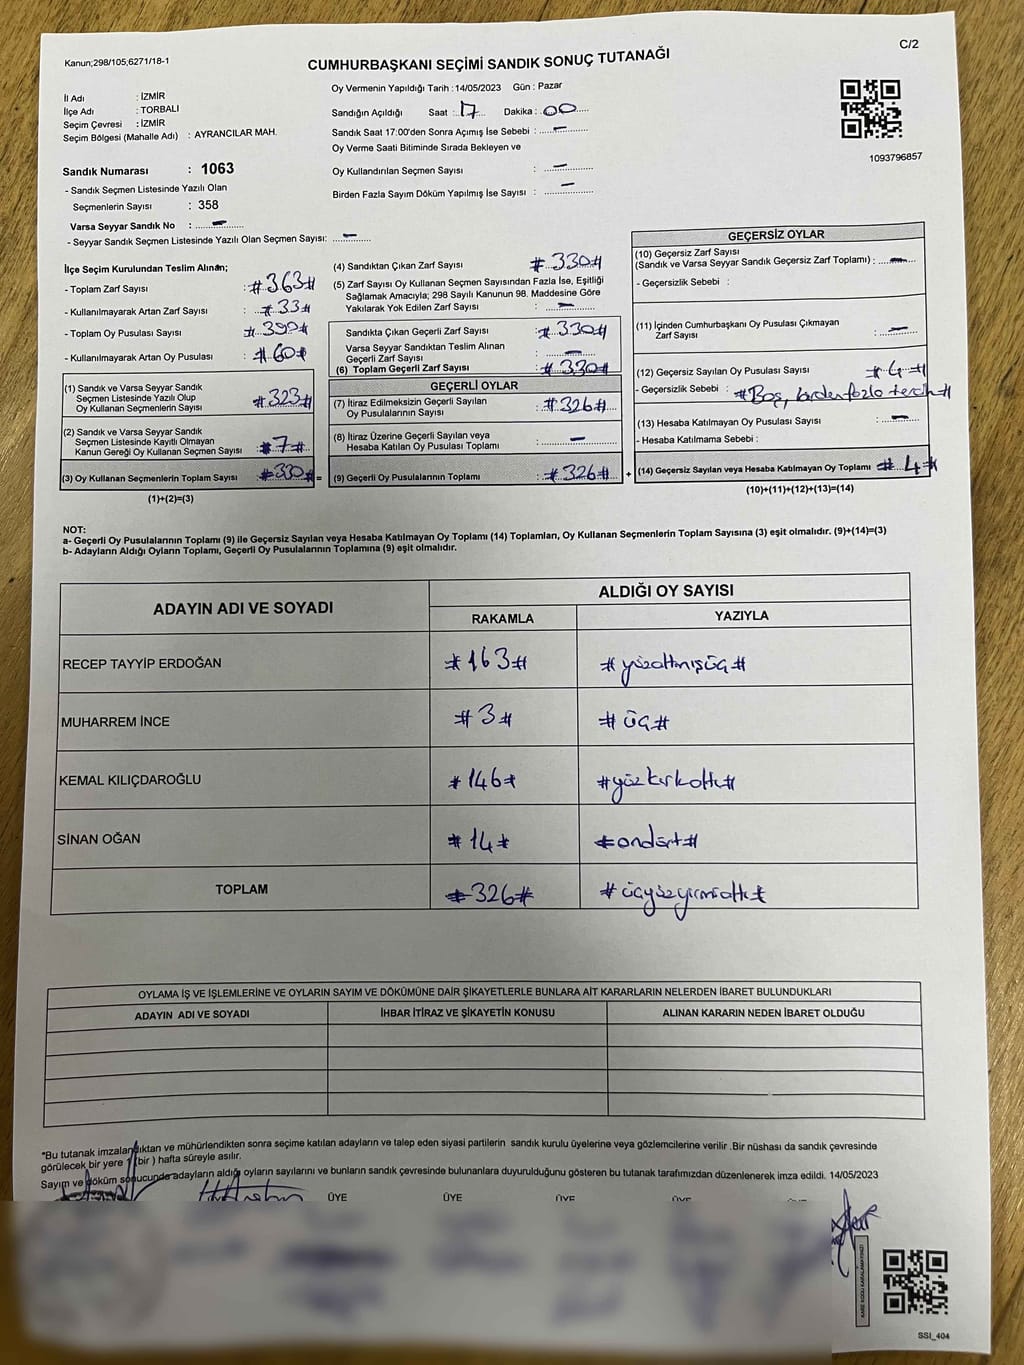 Kanun;298/105;6271/18-1
C/2
CUMHURBAŞKANI SEÇİMİ SANDIK SONUÇ TUTANAĞI
İl Adı : İZMİR
İlçe Adı : TORBALI
Seçim Çevresi : İZMİR
Seçim Bölgesi (Mahalle Adı) : AYRANCILAR MAH.
Sandık Numarası : 1063
- Sandık Seçmen Listesinde Yazılı Olan
Seçmenlerin Sayısı : 358
Varsa Seyyar Sandık No : –
- Seyyar Sandık Seçmen Listesinde Yazılı Olan Seçmen Sayısı: –
Oy Vermenin Yapıldığı Tarih : 14/05/2023 Gün : Pazar
Sandığın Açıldığı Saat : 17 Dakika : 00
Sandık Saat 17:00'den Sonra Açımış İse Sebebi : –
Oy Verme Saati Bitiminde Sırada Bekleyen ve
Oy Kullandırılan Seçmen Sayısı : –
Birden Fazla Sayım Döküm Yapılmış İse Sayısı : –
1093796857
İlçe Seçim Kurulundan Teslim Alınan;
- Toplam Zarf Sayısı : #363#
- Kullanılmayarak Artan Zarf Sayısı : #33#
- Toplam Oy Pusulası Sayısı : #390#
- Kullanılmayarak Artan Oy Pusulası : #60#
(1) Sandık ve Varsa Seyyar Sandık
Seçmen Listesinde Yazılı Olup
Oy Kullanan Seçmenlerin Sayısı : #323#
(2) Sandık ve Varsa Seyyar Sandık
Seçmen Listesinde Kayıtlı Olmayan
Kanun Gereği Oy Kullanan Seçmen Sayısı : #7#
(3) Oy Kullanan Seçmenlerin Toplam Sayısı : #330# =
(1)+(2)=(3)
(4) Sandıktan Çıkan Zarf Sayısı : #330#
(5) Zarf Sayısı Oy Kullanan Seçmen Sayısından Fazla İse, Eşitliği
Sağlamak Amacıyla; 298 Sayılı Kanunun 98. Maddesine Göre
Yakılarak Yok Edilen Zarf Sayısı : –
Sandıkta Çıkan Geçerli Zarf Sayısı : #330#
Varsa Seyyar Sandıktan Teslim Alınan
Geçerli Zarf Sayısı : –
(6) Toplam Geçerli Zarf Sayısı : #330#
GEÇERLİ OYLAR
(7) İtiraz Edilmeksizin Geçerli Sayılan
Oy Pusulalarının Sayısı : #326#
(8) İtiraz Üzerine Geçerli Sayılan veya
Hesaba Katılan Oy Pusulası Toplamı : –
(9) Geçerli Oy Pusulalarının Toplamı : #326# +
GEÇERSİZ OYLAR
(10) Geçersiz Zarf Sayısı
(Sandık ve Varsa Seyyar Sandık Geçersiz Zarf Toplamı) : –
- Geçersizlik Sebebi :
(11) İçinden Cumhurbaşkanı Oy Pusulası Çıkmayan
Zarf Sayısı : –
(12) Geçersiz Sayılan Oy Pusulası Sayısı : #4#
- Geçersizlik Sebebi : #Boş, birden fazla tercih#
(13) Hesaba Katılmayan Oy Pusulası Sayısı : –
- Hesaba Katılmama Sebebi :
(14) Geçersiz Sayılan veya Hesaba Katılmayan Oy Toplamı #4#
(10)+(11)+(12)+(13)=(14)
NOT:
a- Geçerli Oy Pusulalarının Toplamı (9) ile Geçersiz Sayılan veya Hesaba Katılmayan Oy Toplamı (14) Toplamları, Oy Kullanan Seçmenlerin Toplam Sayısına (3) eşit olmalıdır. (9)+(14)=(3)
b- Adayların Aldığı Oyların Toplamı, Geçerli Oy Pusulalarının Toplamına (9) eşit olmalıdır.
ADAYIN ADI VE SOYADI ALDIĞI OY SAYISI
RAKAMLA YAZIYLA
RECEP TAYYİP ERDOĞAN #163# #yüzaltmışüç#
MUHARREM İNCE #3# #üç#
KEMAL KILIÇDAROĞLU #146# #yüzkırkaltı#
SİNAN OĞAN #14# #ondört#
TOPLAM #326# #üçyüzyirmialtı#
OYLAMA İŞ VE İŞLEMLERİNE VE OYLARIN SAYIM VE DÖKÜMÜNE DAİR ŞİKAYETLERLE BUNLARA AİT KARARLARIN NELERDEN İBARET BULUNDUKLARI
ADAYIN ADI VE SOYADI İHBAR İTİRAZ VE ŞİKAYETİN KONUSU ALINAN KARARIN NEDEN İBARET OLDUĞU
*Bu tutanak imzalandıktan ve mühürlendikten sonra seçime katılan adayların ve talep eden siyasi partilerin sandık kurulu üyelerine veya gözlemcilerine verilir .Bir nüshası da sandık çevresinde
görülecek bir yere 1 (bir ) hafta süreyle asılır.
Sayım ve döküm sonucunda adayların aldığı oyların sayılarını ve bunların sandık çevresinde bulunanlara duyurulduğunu gösteren bu tutanak tarafımızdan düzenlenerek imza edildi. 14/05/2023
ÜYE ÜYE ÜYE ÜYE
SSI_404